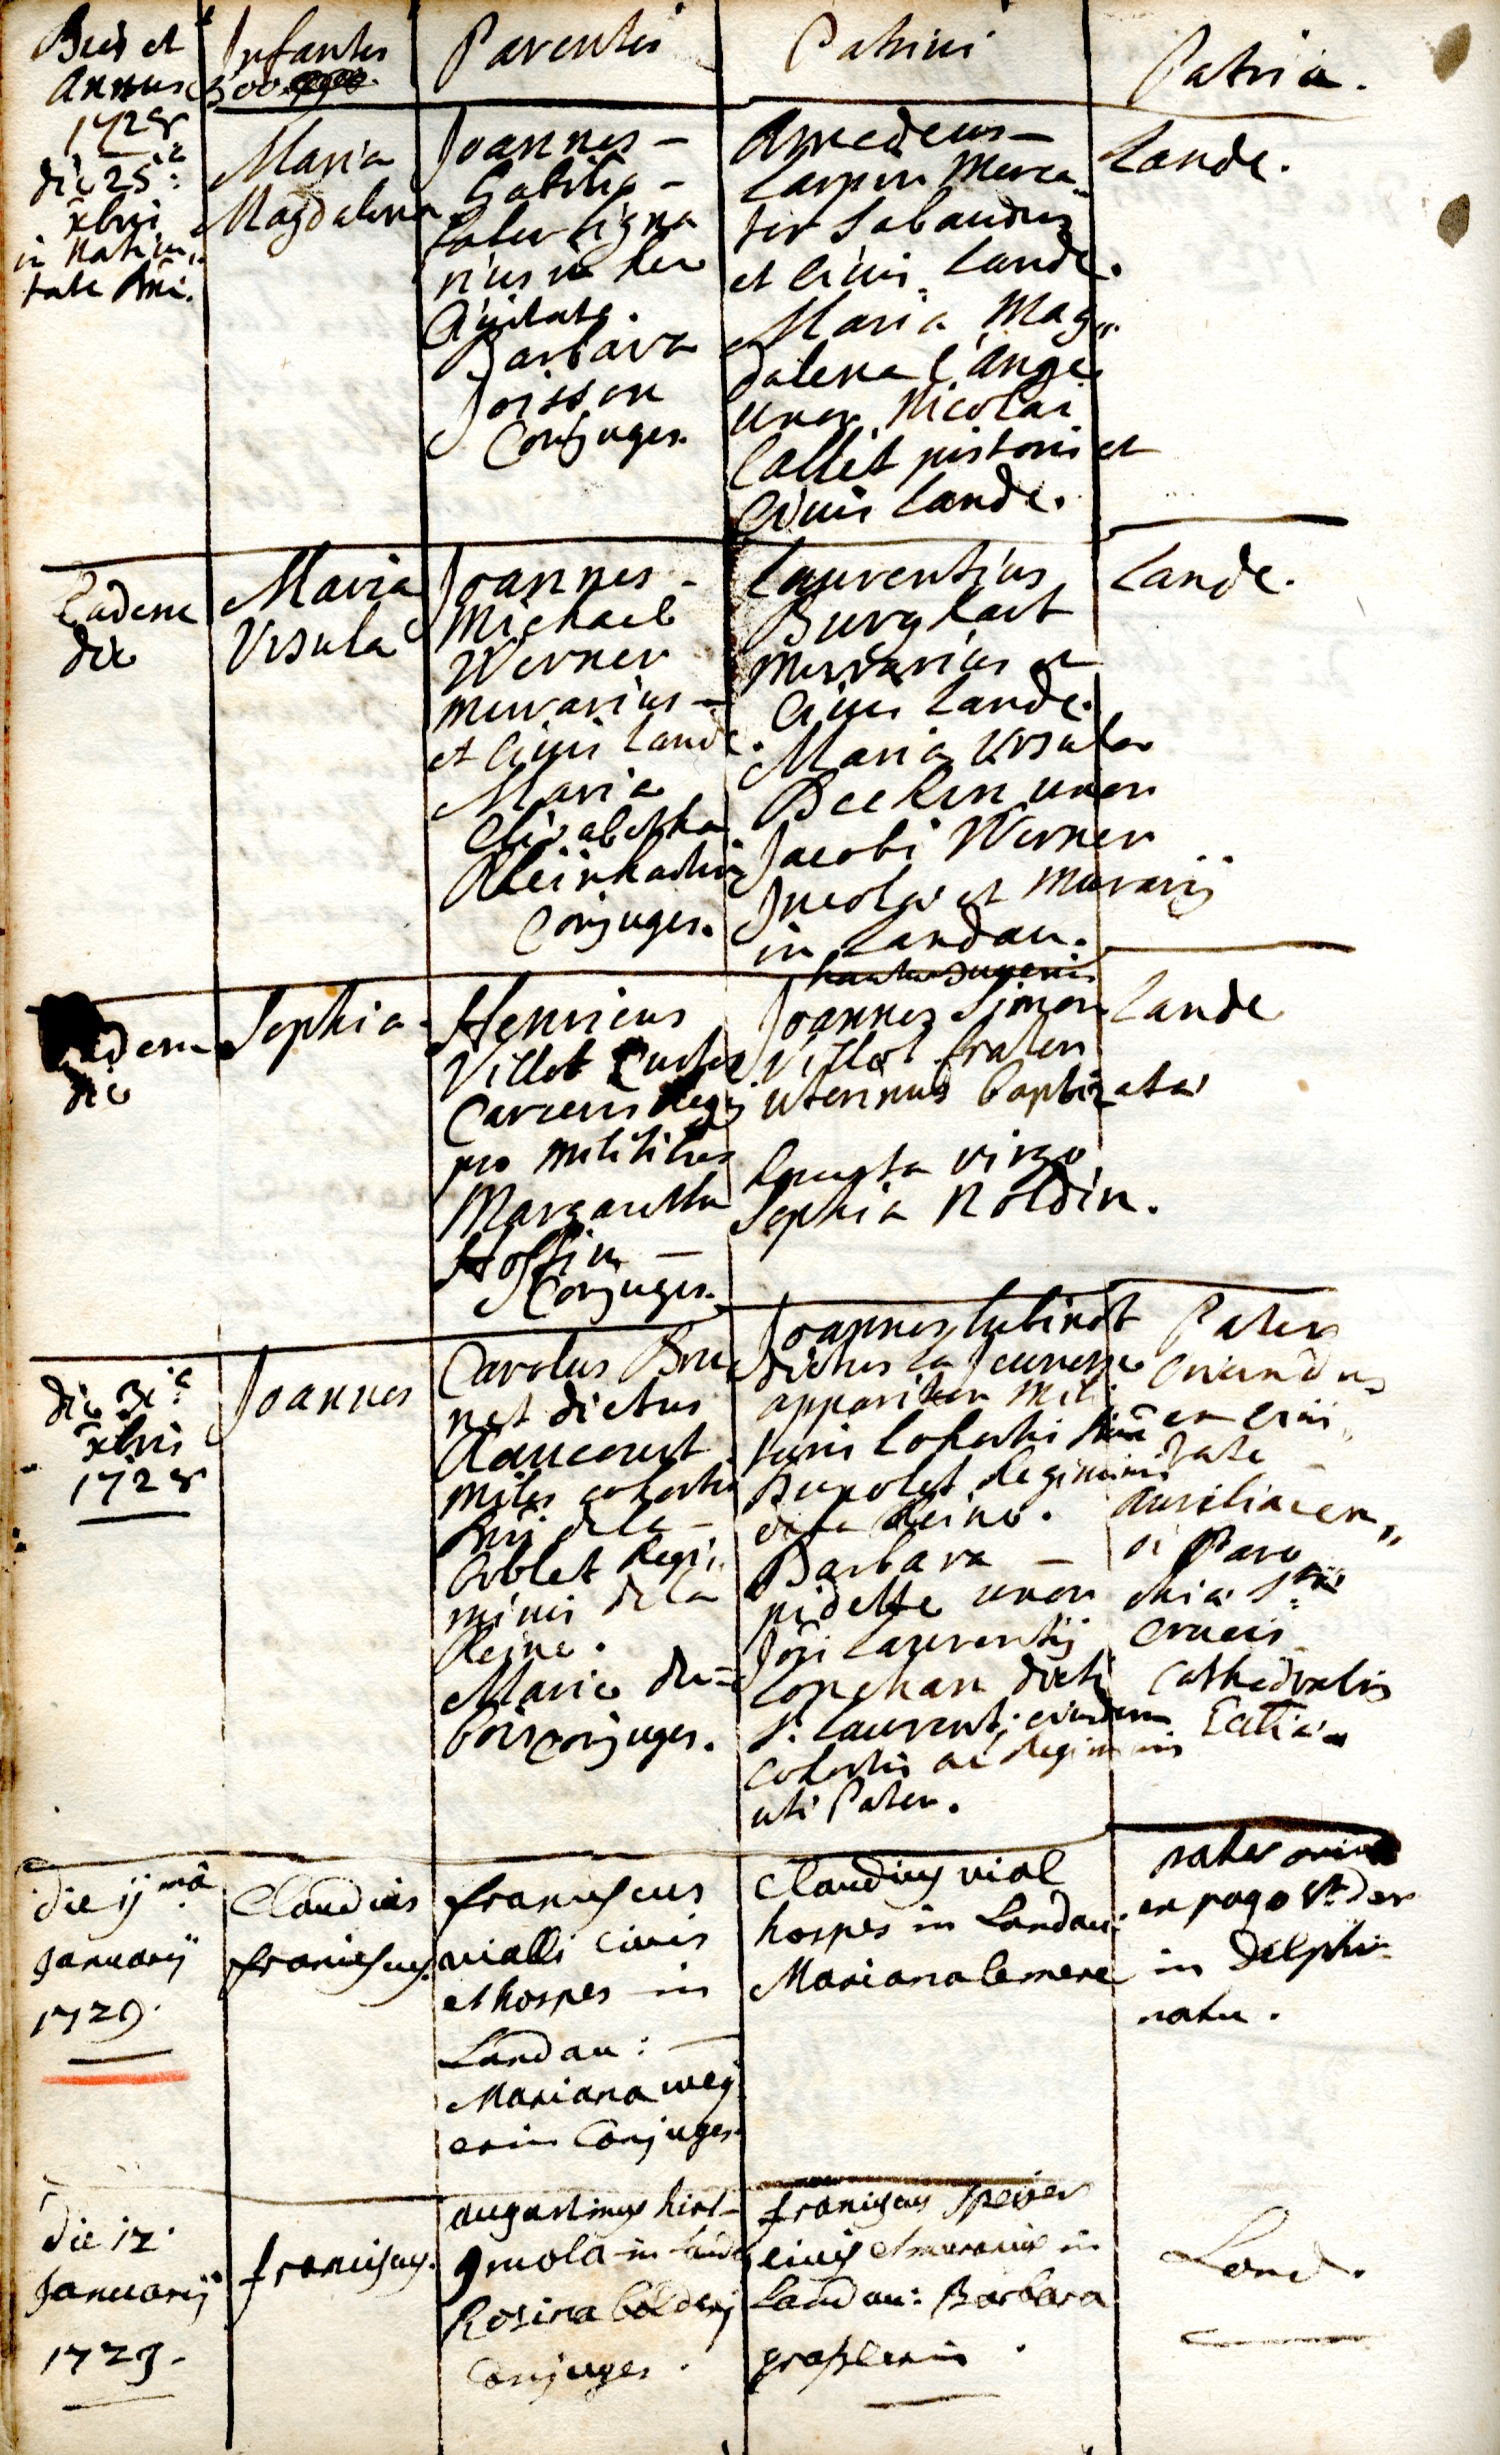 Dies et
Annus
Infantes
300
Parentes
Patrini
Patria.
1728
die 25.a
xbris
in Nativi,,
tate Dni.
Maria
Magdalena
Joannes –
faber ligna
rius in hac
Civitate.
Barbara
Joisson
Conjuges.
Amedeus –
Merca,,
tor Sabaudus
et Civis Lande.
Maria Mag,,
dalena l'ange
uxor Nicolai
Collet pistoris et
Civis Lande.
Lande.
Eadem
die
Maria
Ursula
Joannes –
Michael
Werner
murarius –
et Civis Lande.
Maria
Elisabetha
Conjuges.
Laurentius
Burghart
murarius et
Civis Lande.
Maria Ursula
Beckin uxor
Jacobi Werner
Incolae et Murarij
in Landau.
Lande.
eadem
die
Sophia
Henricus
Villot Custos
Carceris Regij
pro militibus
Margaretha
Hoffin –
Conjuges.
Joannes Simon
Villot frater
uterinus baptizatae
honesta virgo
Sophia Noldin.
Lande
die 31.a
xbris
1728
Joannes
Carolus Bru
net dictus
miles cohortis
Dni de la –
Goblet Regi,,
minis de la
Reine.
Marie du=
bois conjuges.
Joannes
dictus la Jeunesse
apparitor mili
taris Cohortis Dni
Regiminis
de la Reine.
Barbara –
pidette uxor
Jois Laurentij
Conchan dicti
St. Laurent; eiusdem
Cohortis ac Regiminis
uti Pater.
Pater
oriundus
ex civi,,
tate
Aureliacen,,
si Paro
chia S.tae
crucis
Cathedralis
Eccliae
die ijma
Januarij
1729.
Claudius
franciscus.
franciscus
vialli civis
et hospes in
Landau: –
Mariana wey
erin Conjuges.
Claudius vial
hospes in Landau:
Mariana lemere
pater oriund
ex pago
in Delphi-
natu.
die 12.
Januarij
1729.
franciscus.
augustinus hirt –
Incola in Landau
Rosina
Conjuges.
franciscus speiser
civis et murarius in
Landau: Barbara
Land.